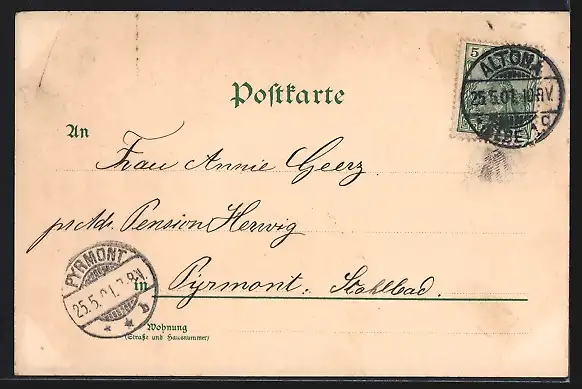 5
ALTONA
25.5.01.
Postkarte
An
Frau Annie Geerz
pr. Adr. Pension Herwig
PYRMONT
25.5.01.
in Pyrmont. Stahlbad.
Wohnung
(Straße und Hausnummer)